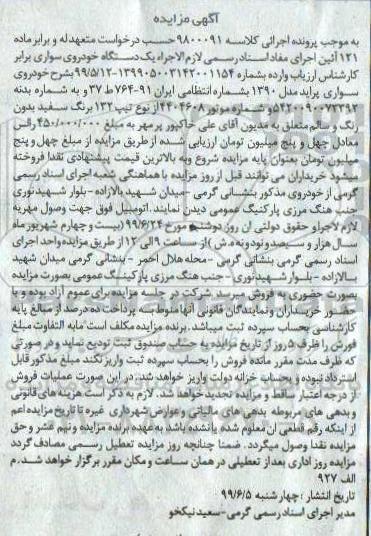 آگهی مزایده
به موجب پرونده اجرائی کلاسه ۹۸۰۰۰۹۱ حسب درخواست متعهدله و برابر ماده
۱۲۱ آئین اجرای مفاد اسناد رسمی لازم الاجراء یک دستگاه خودروی سواری برابر
کارشناس ارزیاب وارده بشماره ۱۳۹۹۰۵۰۰۳۱۴۲۰۰۱۱۵۴-۹۹/۵/۱۲ بشرح خودروی
سواری پراید مدل ۱۳۹۰ بشماره انتظامی ایران ۹۱-۷۶۴ط۳۷ و به شماره بدنه
و شماره موتور ۴۴۰۴۶۰۸ از نوع تیپ ۱۳۲ برنگ سفید بدون
رنگ و سالم متعلق به مدیون آقای علی خاکپور پرمهر به مبلغ ۴۵۰/۰۰۰/۰۰۰ رالس
معادل چهل و پنج میلیون تومان ارزیابی شده از طریق مزایده از مبلغ چهل و پنج
میلیون تومان بعنوان پایه مزایده شروع و به بالاترین قیمت پیشنهادی نقدا فروخته
میشود خریداران می توانند قبل از روز مزایده با هماهنگی شعبه اجرای اسناد رسمی
گرمی از خودروی مذکور بنشسانی گرمی -میدان شهید بالازاده -بلوار شهید نوری
جنب هنگ مرزی پارکینگ عمومی دیدن نمایند. اتومبیل فوق جهت وصول مهریه
لازم لاجراو حقوق دولتی ان روز دوشنبه مورخ ۹۹/۶/۲۴ (بیست و چهارم شهریور ماه
سال هزار و سیصد و نود و نه ه.ش) از ساعت ۹ الی ۱۲ از طریق مزایده واحد اجرای
اسناد رسمی گرمی بنشانی گرمی - محله هلال احمر - بنشانی گرمی میدان شهید
بالازاده - بلوار شهید نوری - جنب هنگ مرزی پارکینگ عمومی بصورت مزایده
بصورت حضوری به فروش میرسد شرکت در جلسه مزایده برای عموم آزاد بوده و با
حضور خریداران و نمایندگان قانونی آنها منوط به پرداخت ده درصد از مبالغ پایه
کارشناسی بحساب سپرده ثبت میباشد. برنده مزایده مکلف است مابه التفاوت مبلغ
فورش را ظرف ۵ روز از تاریخ مزایده به حساب صندوق ثبت تودیع نماید و در صورتی
که ظرف مدت مقرر مانده فروش را بحساب سپرده ثبت واریز نکند مبلغ مذکور قابل
استرداد نبوده و بحساب خزانه دولت واریز خواهد شد. در این صورت عملیات فروش
از درجه اعتبار ساقط و مزایده تجدید خواهد شد. لازم به ذکر است هزینه های قانونی
و بدهی های مربوطه بدهی های مالیاتی و عوارض شهرداری غیره تا تاریخ مزایده اعم
از اینکه رقم قطعی آن معلوم شده یا نشده باشد به عهده برنده مزایده و نیم عشر و حق
مزایده نقدا وصول میگردد. ضمنا چنانچه روز مزایده تعطیل رسمی مصادف گردد
مزایده روز اداری بعد از تعطیلی در همان ساعت و مکان مقرر برگزار خواهد شد. م
الف ۹۲۷
تاریخ انتشار : چهارشنبه ۹۹/۶/۵
مدیر اجرای اسناد رسمی گرمی-سعید نیکخو